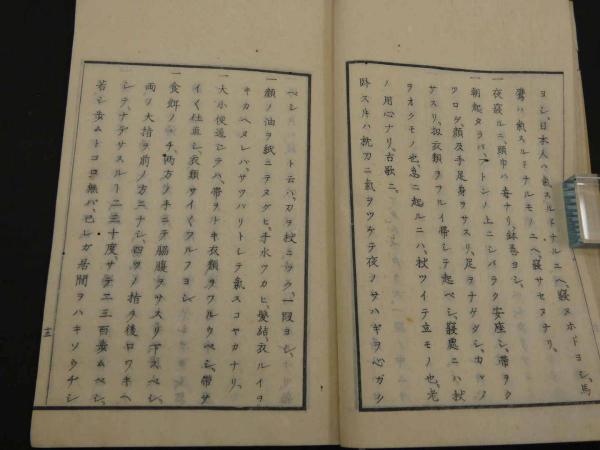 ヨシ、日本人ハ氣スルドナルニヘ、寢ヌホドヨシ、馬
鷹ハ氣スルドナルモノニヘ、寢サセヌナリ、
一夜寢ルニ、頭巾ハ毒ナリ、鉢巻ヨシ、
一朝起タラバ、フトンノ上ニシバラク安座シ、帯ヲク
ツロゲ、顔及手足身ヲサスリ、足ヲナゲダシ、カヽノ
サスリ、扨衣類ヲフルイ帶シテ起ベシ、寢處ニハ杖
ヲオクモノ也、急ニ起ルニハ、杖ツイテ立モノ也、老
ノ用心ナリ、古歌ニ、
時スギハ枕刀ニ氣ヲツケテ夜ノサハギヲ心ガケ
ベシ
ト云ハ、刀ヲ杖ニツク、一段ヨシ、
一顔ノ油ヲ紙ニテヌグヒ、手水ツカヒ、髮結、衣ルイヲ
キカヘヌレバ、サツパリトシテ氣スコヤカナリ、
一大小便通シテハ、帶ヲトキ衣類ヲフルウベシ、帶サ
イ〱仕直シ、衣類サイ〱フルフヨシ、
一食餌ノノチ、両方ノ手ニテ脇腹ヲサスリ下スベシ、
両ノ大指ヲ前ノ方ニナシ、四ツノ指ヲ後ロワキヘ
シテ、ナデサスルヿ二三十度、サテ二三百歩ムベシ、
若シ歩ムトコロ無バ、己レガ居間ヲハキソウヂシ
十三